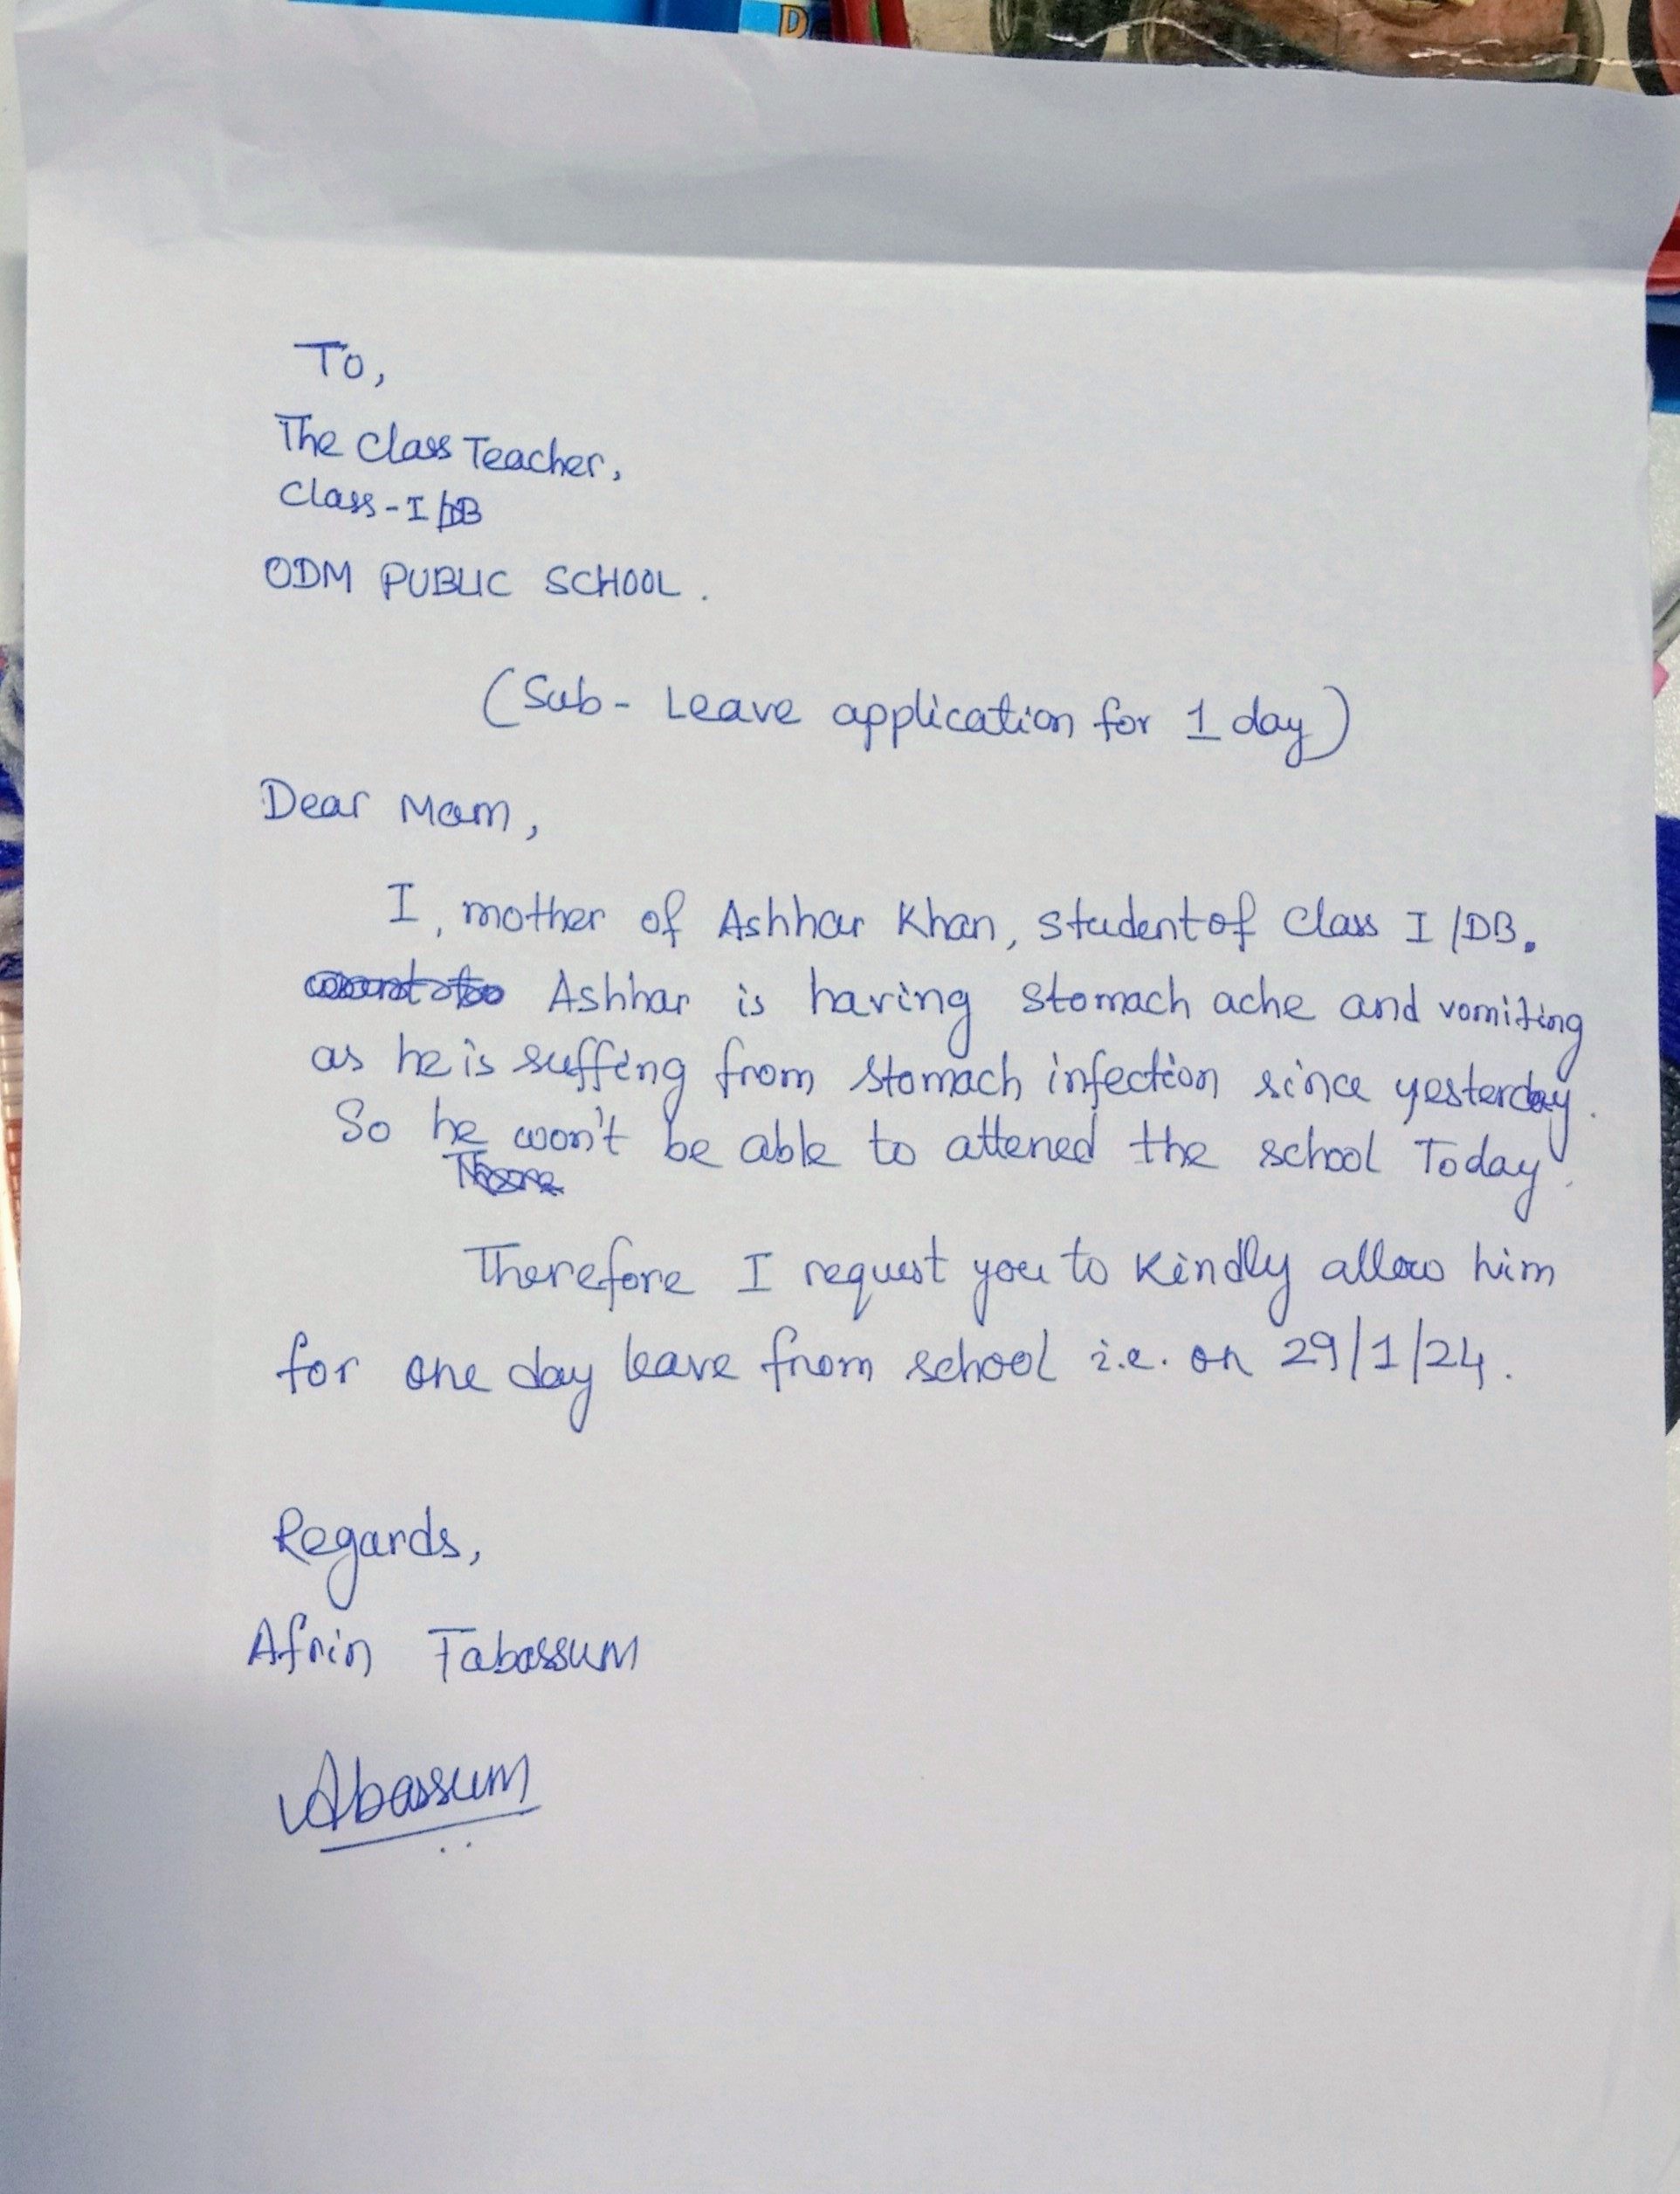 To,
The Class Teacher,
Class-I/DB
ODM PUBLIC SCHOOL.
(Sub- Leave application for 1 day)
Dear Mam,
I, mother of Ashhar Khan, student of Class I/DB.
Ashhar is having stomach ache and vomiting
as he is suffing from stomach infection since yesterday.
So he won't be able to attened the school Today.
Therefore I request you to kindly allow him
for one day leave from school i.e. on 29/1/24.
Regards,
Afrin Tabassum
Abassum